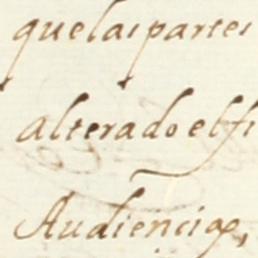 que las partes
alterado el fi
Audiençia,